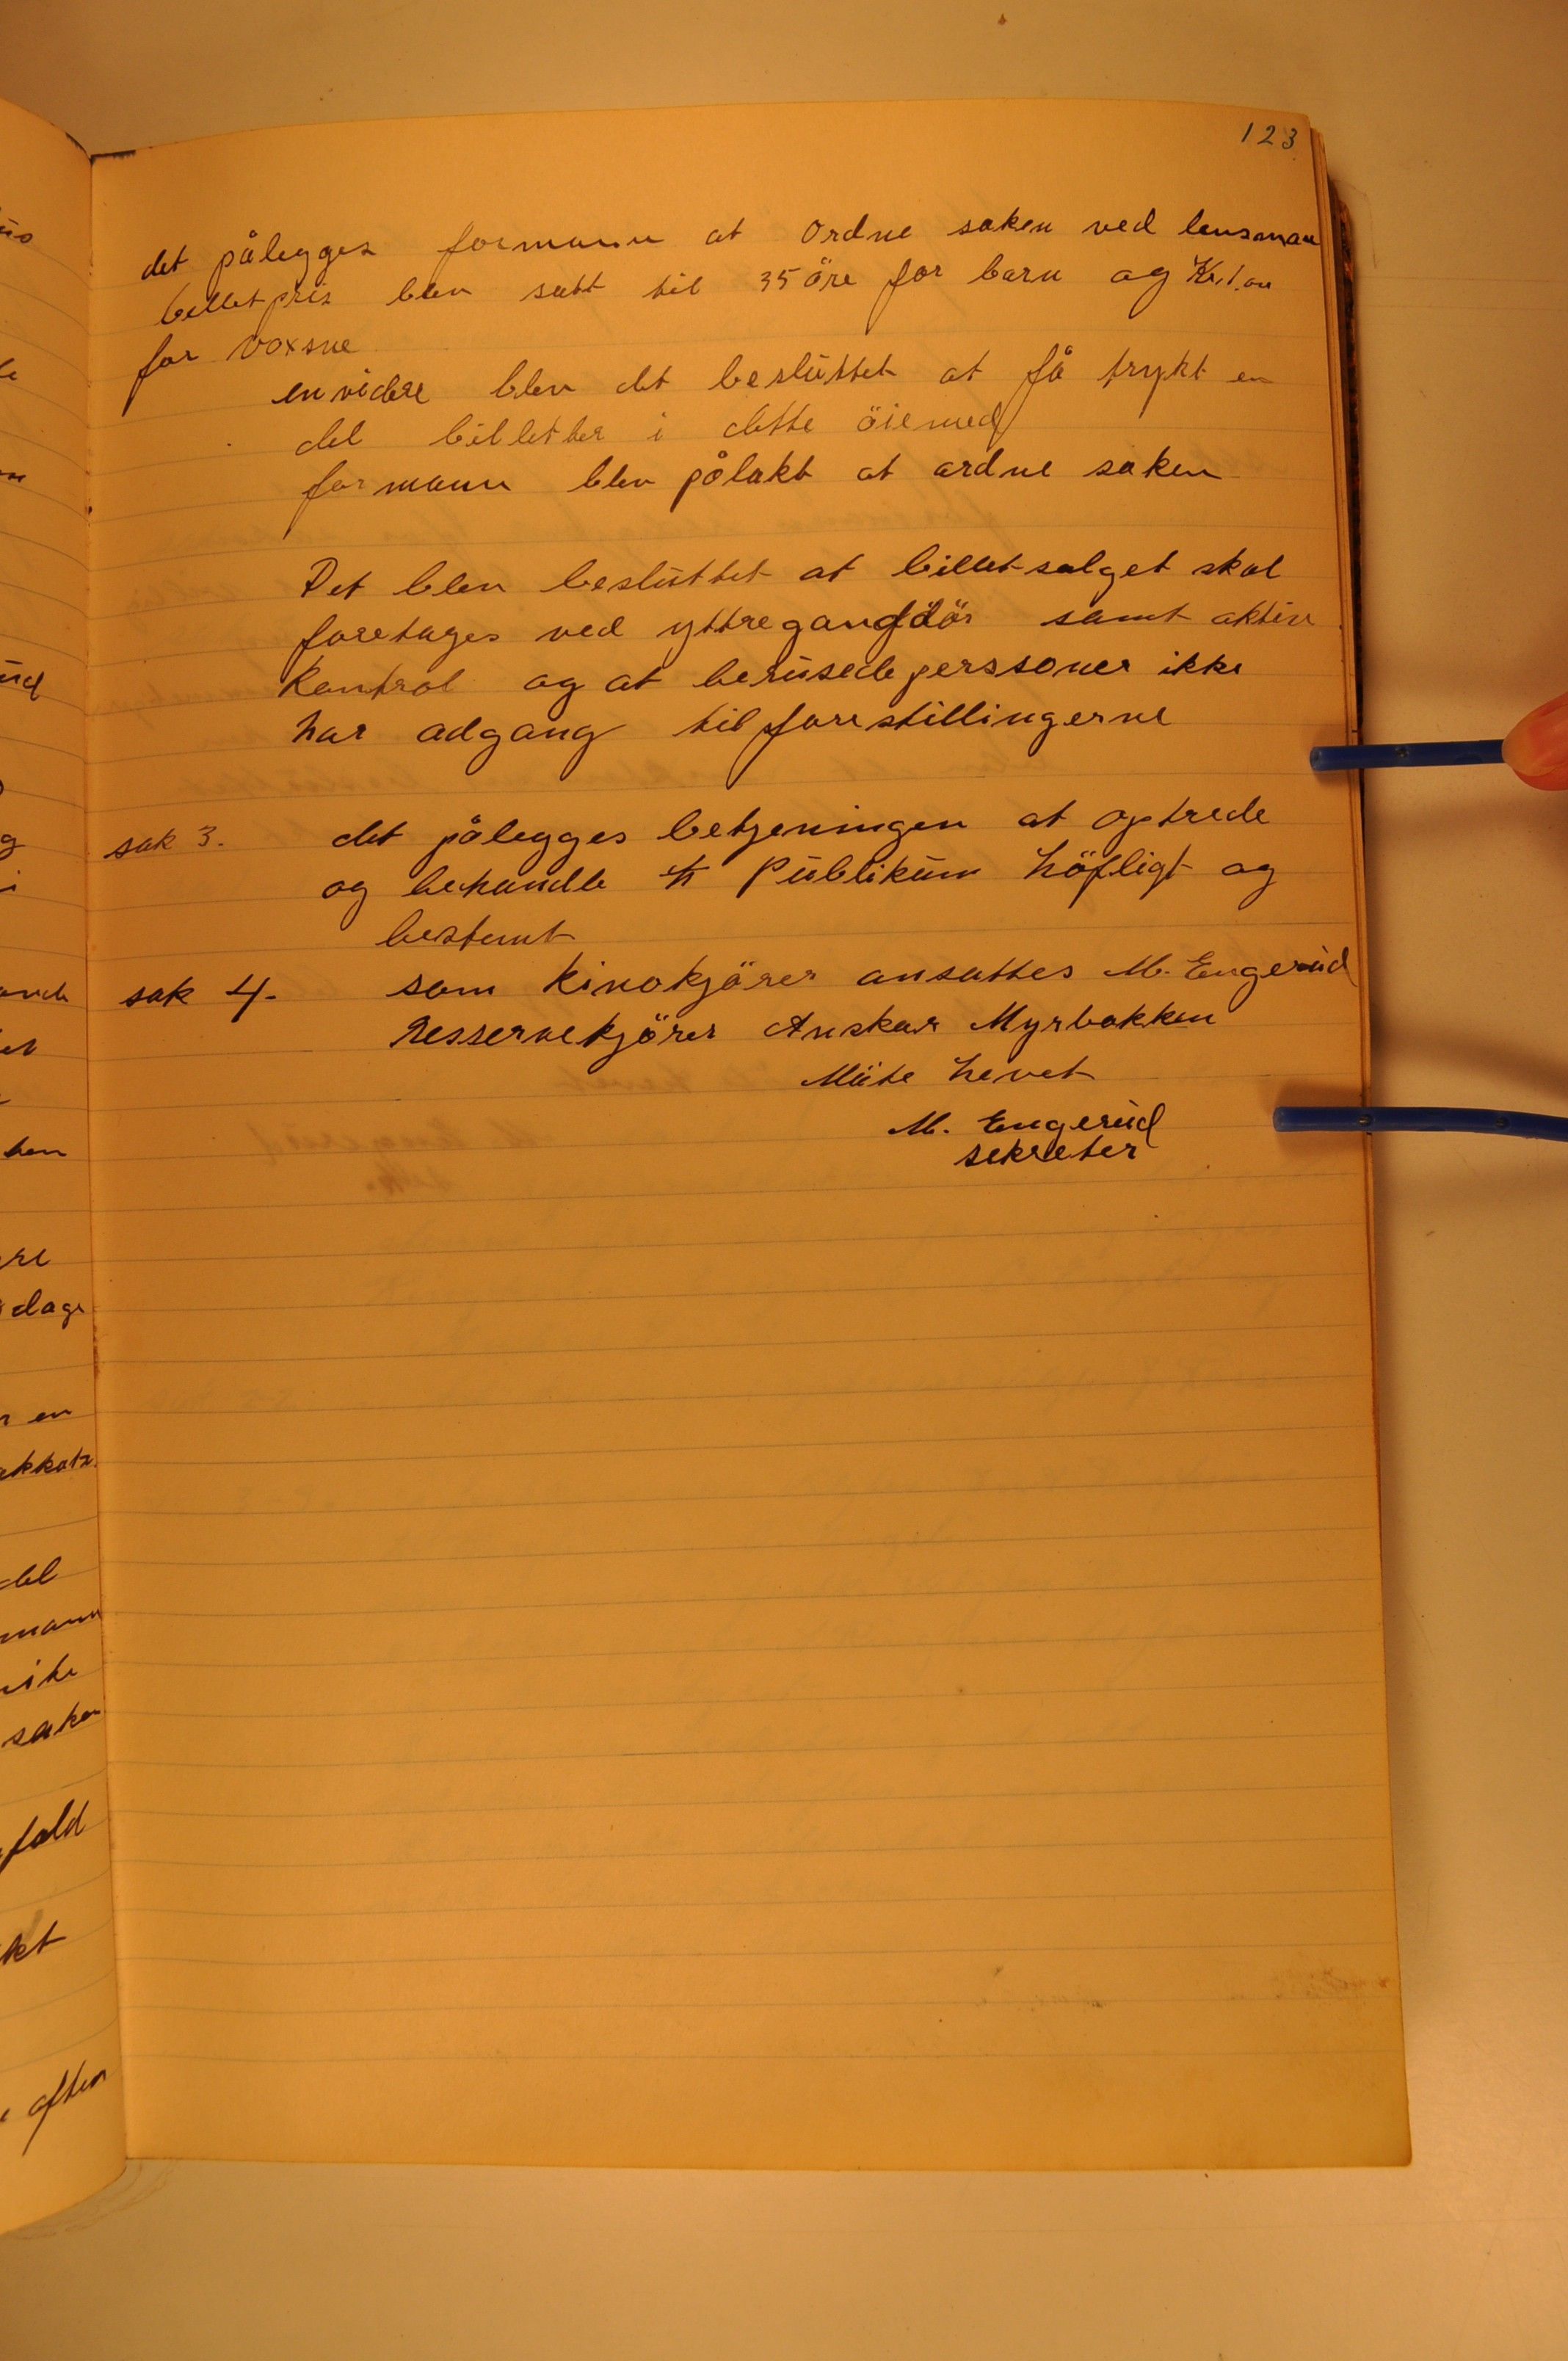 123
det pålegges formann at Ordne saken ved lensman
billetpris blev satt til 35 öre for barn og Kr. 1.00
for voxsne
envidere blev det besluttet at få trykt en
del billetter i dette öiemed
formann blev pålakt at ordne saken
Det blev besluttet at billetsalget skal
foretages ved yttregangdör samt aktiv
kontrol og at berusede perssoner ikke
har adgang til forestillingerne
sak 3. det pålegges betjeningen at optrede
og behandle Publikum höfligt og
bestemt
sak 4. som kinokjörer ansattes M. Engerud
Resservekjörer Anskar Myrbakken
Möte hevet
M. Engerud
sekreter
ud
hen
dage
en
akkats
mann
saken
fald
kt
aften